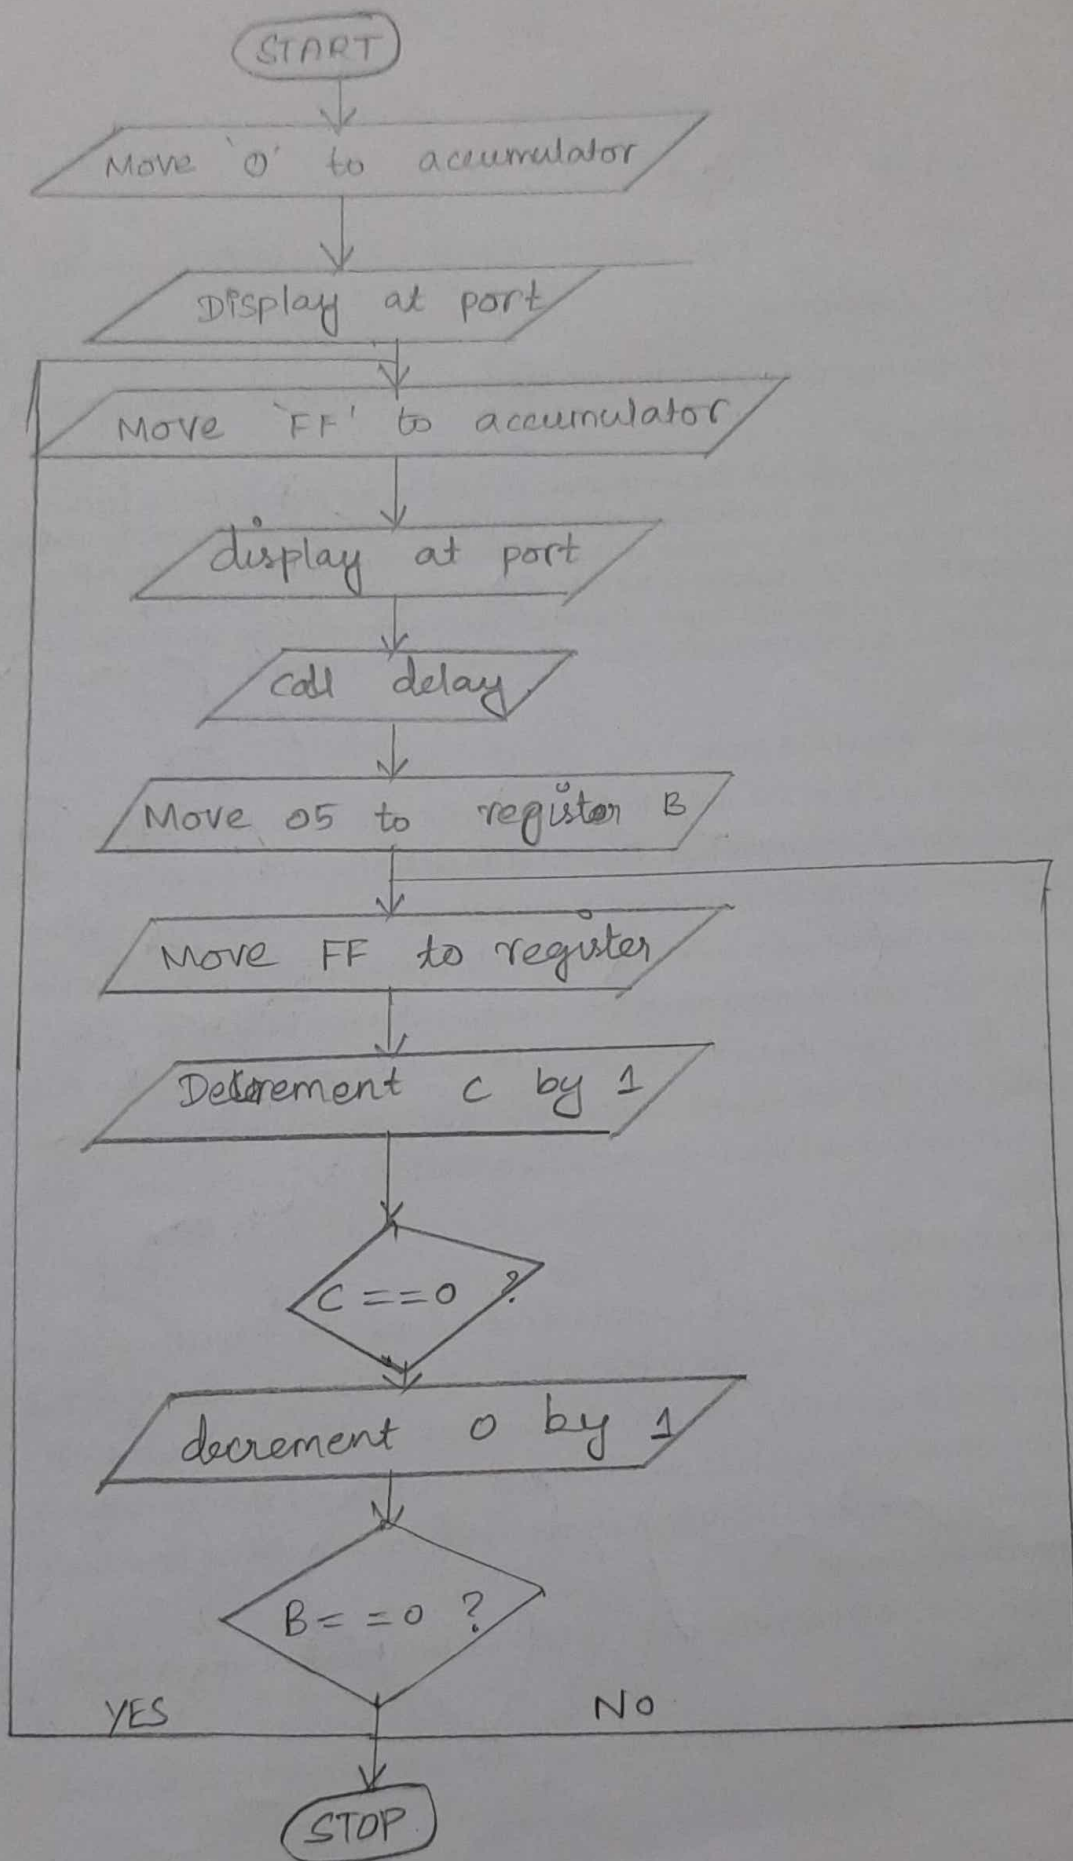 START
Move '0' to accumulator
Display at port
Move 'FF' to accumulator
display at port
call delay
Move 05 to register B
Move FF to register
Decrement C by 1
C==0 ?
decrement 0 by 1
B==0 ?
YES NO
STOP